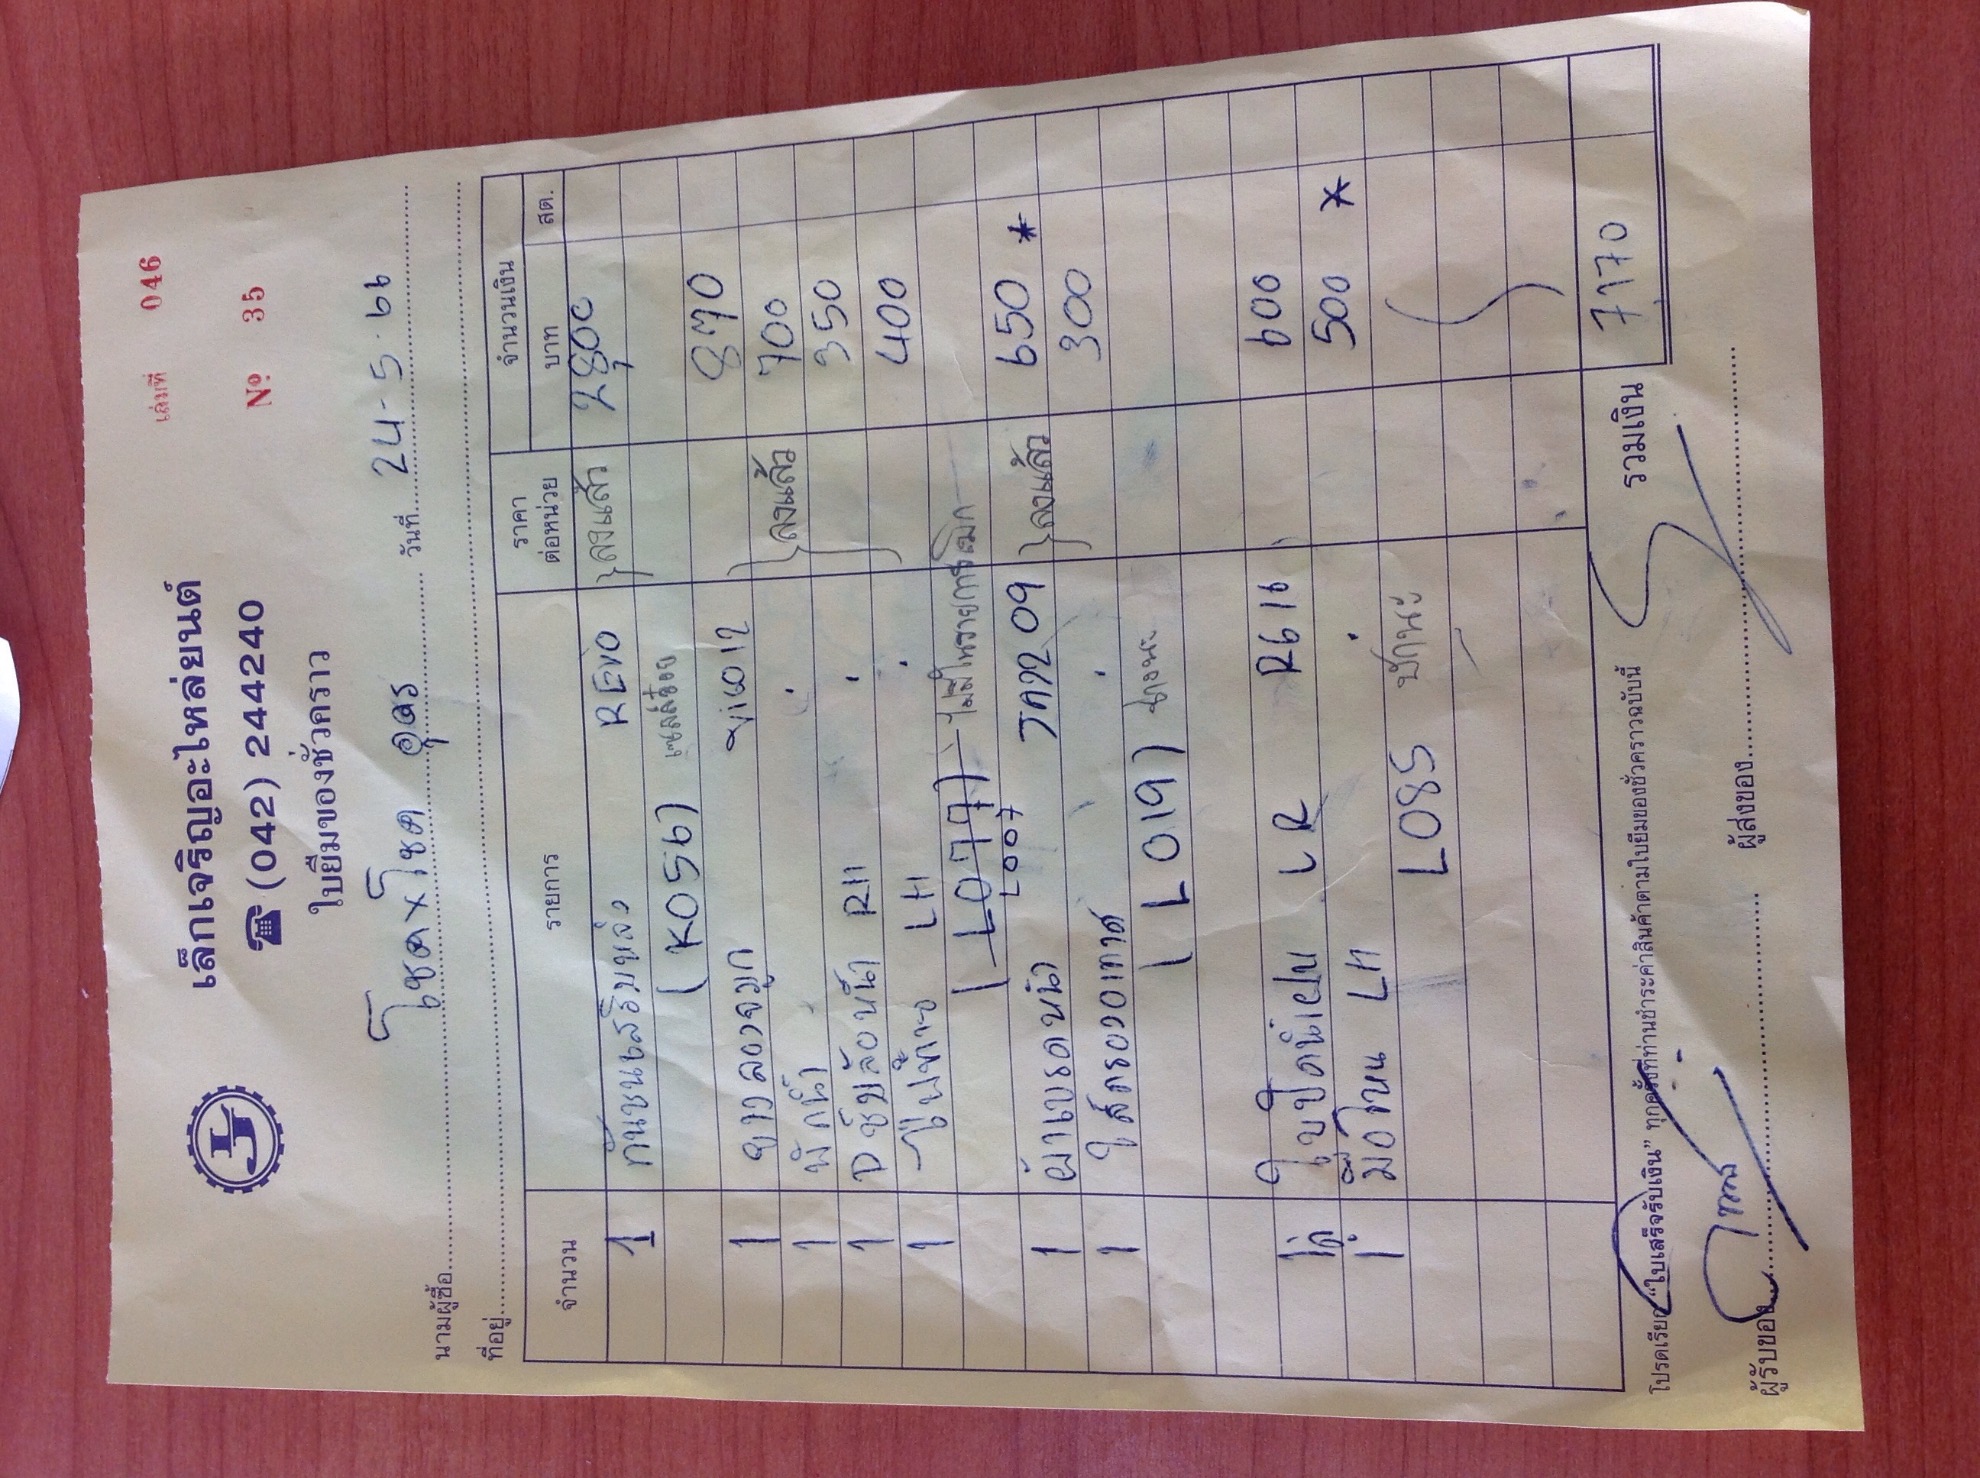 เล่มที่ 046
เล็กเจริญอะไหล่ยนต์
☎ (042) 244240
Nº 35
ใบยืมของชั่วคราว
นามผู้ซื้อ โชคxโชค อุดร วันที่ 24-5-66
ที่อยู่
จำนวน รายการ ราคาต่อหน่วย จำนวนเงิน
บาท สต.
1 กันชนเสริมหลัง REVO ลงแล้ว 2800
(K056)
1 ยางรองจมูก vigo 12 870
1 พักน้ำ ลงแล้ว 700
1 RH 350
1 ไฟท้าย LH 400
(L077) ไม่มีในรายการเบิก
L007
1 ผ้าเบรคหน้า 09 ลงแล้ว 650 *
1 ไส้กรองอากาศ 300
(L019)
LR R616 600
1 LH 500 *
L085
รวมเงิน 7170
โปรดเรียก “ใบเสร็จรับเงิน” ทุกครั้งที่ท่านชำระค่าสินค้าตามใบยืมของชั่วคราวฉบับนี้
ผู้รับของ ผู้ส่งของ